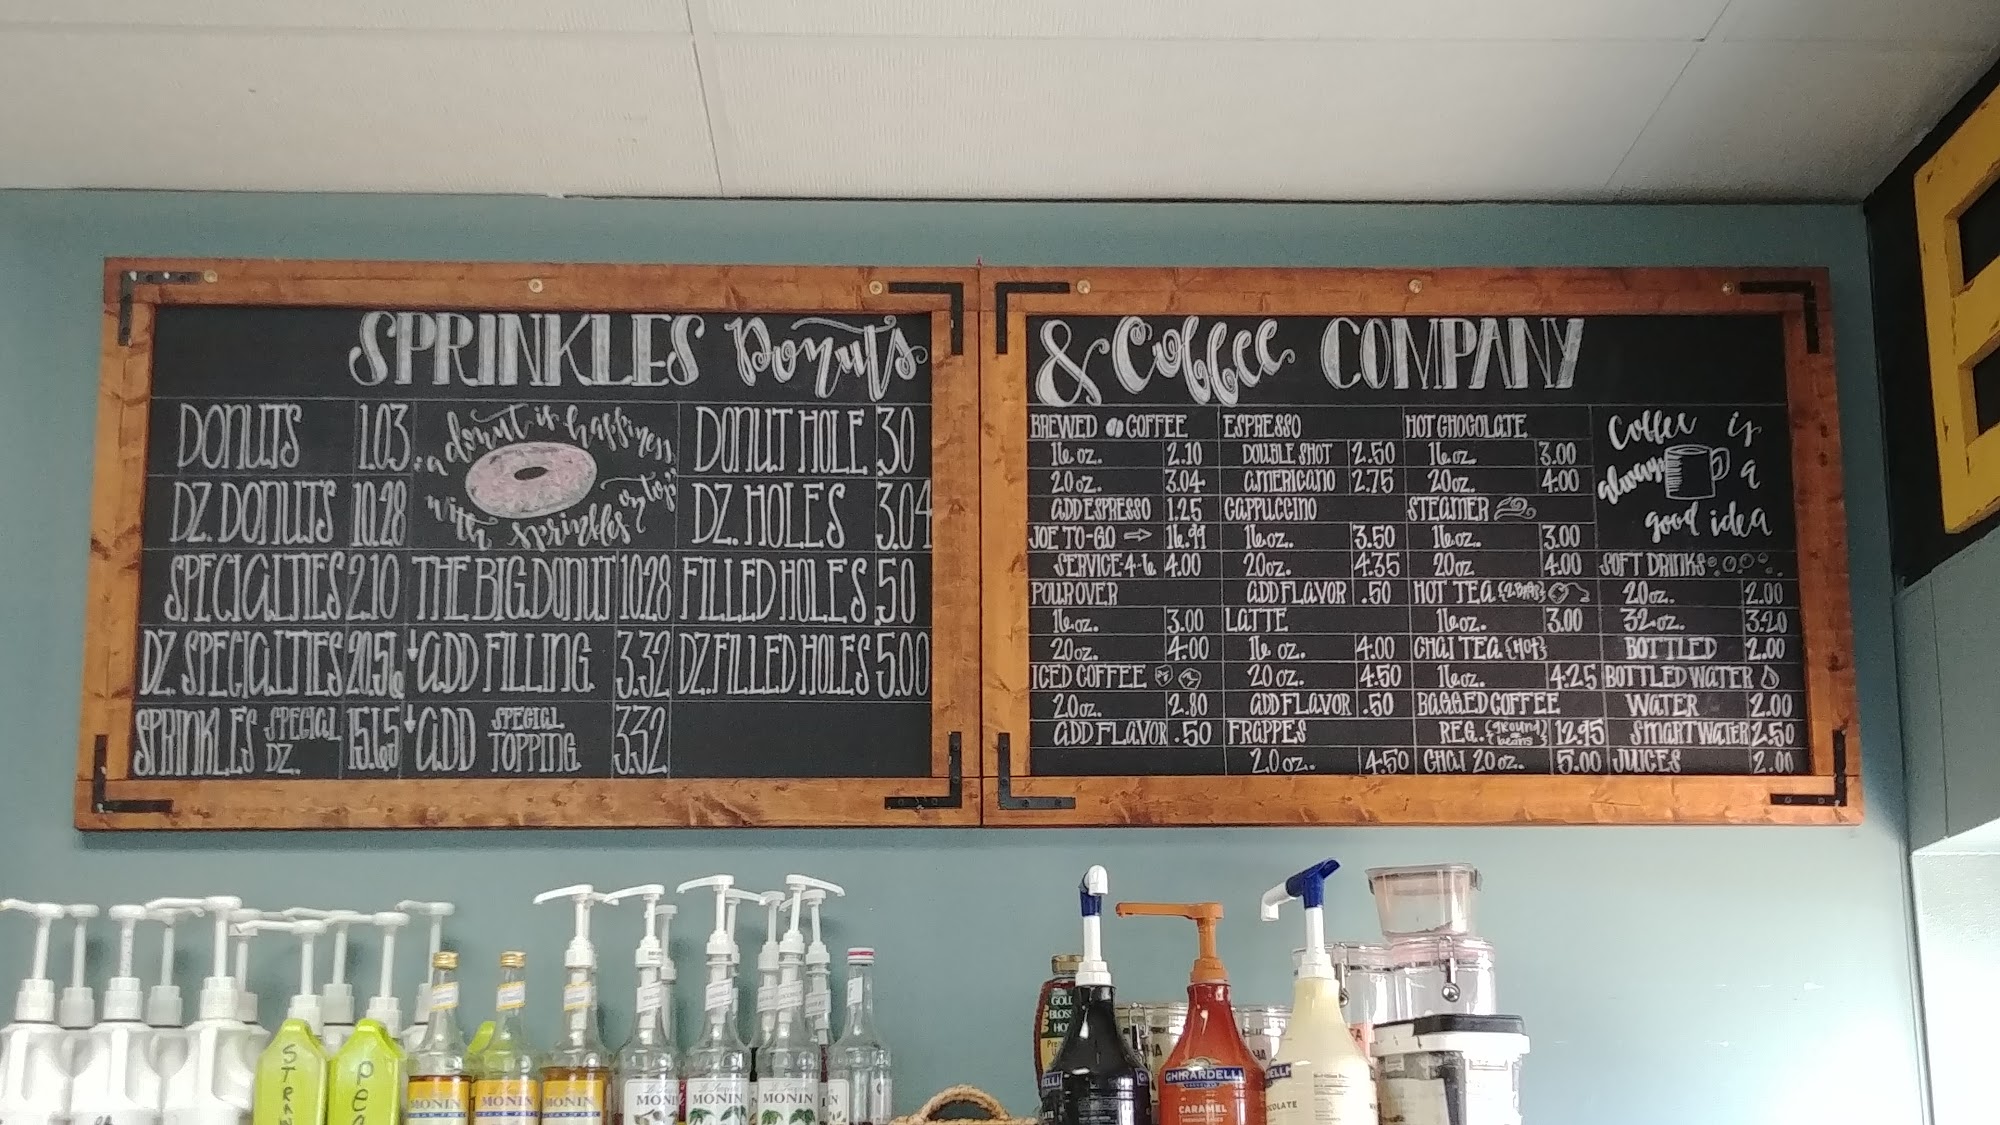 SPRINKLES Donuts
DONUTS 1.03
DZ. DONUTS 10.28
SPECIALTIES 2.10
DZ. SPECIALTIES 20.56
SPRINKLES SPECIAL DZ. 15.15
a donut is happiness
with sprinkles on top
THE BIG DONUT 10.28
ADD FILLING 3.32
ADD SPECIAL TOPPING 3.32
DONUT HOLE .30
DZ. HOLES 3.04
FILLED HOLES .50
DZ. FILLED HOLES 5.00
& Coffee COMPANY
BREWED COFFEE
16 oz. 2.10
20 oz. 3.04
ADD ESPRESSO 1.25
JOE TO-GO 16.99
SERVICE 4-6 4.00
POUR OVER
16 oz. 3.00
20 oz. 4.00
ICED COFFEE
20 oz. 2.80
ADD FLAVOR .50
ESPRESSO
DOUBLE SHOT 2.50
AMERICANO 2.75
CAPPUCCINO
16 oz. 3.50
20 oz. 4.35
ADD FLAVOR .50
LATTE
16 oz. 4.00
20 oz. 4.50
ADD FLAVOR .50
FRAPPES
20 oz. 4.50
HOT CHOCOLATE
16 oz. 3.00
20 oz. 4.00
STEAMER
16 oz. 3.00
20 oz. 4.00
HOT TEA {2 BAGS}
16 oz. 3.00
CHAI TEA {HOT}
16 oz. 4.25
BAGGED COFFEE
REG. {ground beans} 12.95
CHAI 20 oz. 5.00
Coffee is
always a
good idea
SOFT DRINKS
20 oz. 2.00
32 oz. 3.20
BOTTLED 2.00
BOTTLED WATER
WATER 2.00
SMART WATER 2.50
JUICES 2.00
MONIN
MONIN
MONIN
MONIN
MONIN
MONIN
GHIRARDELLI
CARAMEL